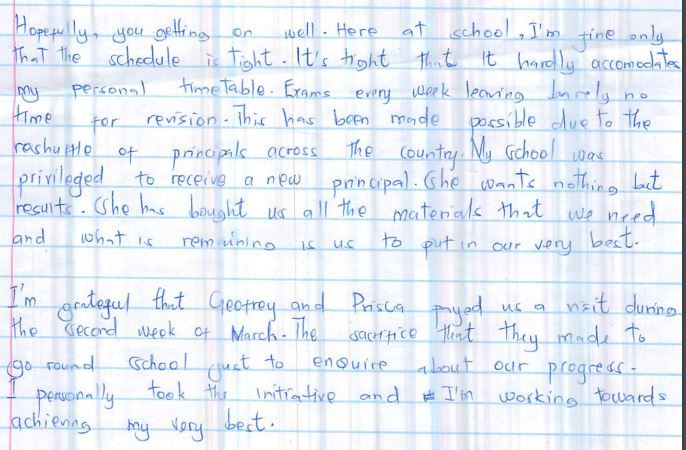 Hopefully, you getting on well. Here at school, I'm fine only
that the schedule is tight. It's tight that it hardly accomodates
my personal timetable. Exams every week leaving barely no
time for revision. This has been made possible due to the
reshuffle of principals across the country. My school was
privileged to receive a new principal. She wants nothing but
results. She has bought us all the materials that we need
and what is remaining is us to put in our very best.
I'm grateful that Geofrey and Prisca payed us a visit during
the second week of March. The sacrifice that they made to
go round school just to enquire about our progress.
I personally took the initiative and I'm working towards
achieving my very best.